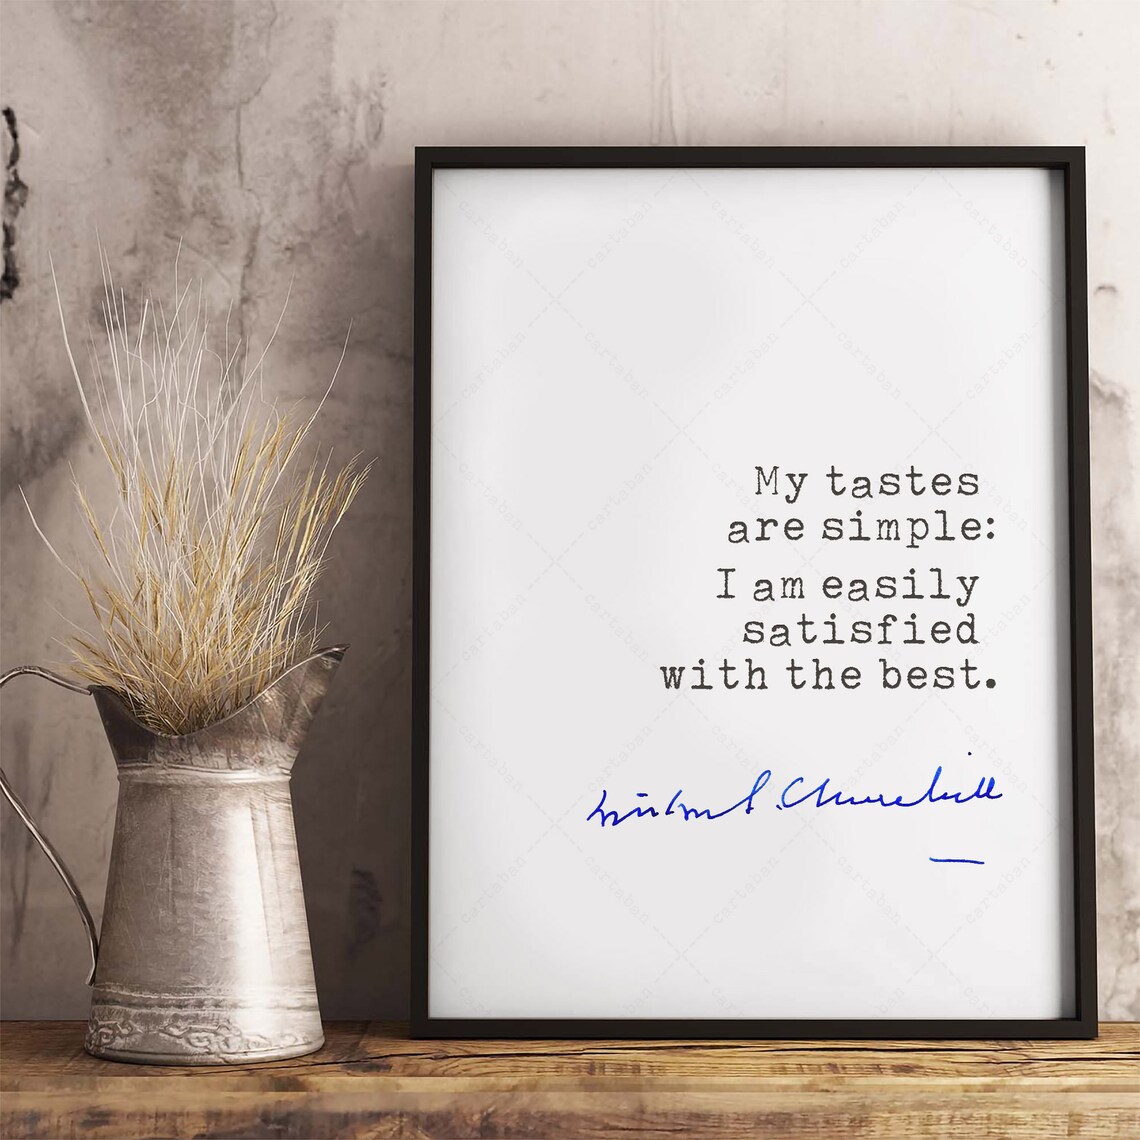 My tastes
are simple:
I am easily
satisfied
with the best.
Winston S. Churchill
cartaban